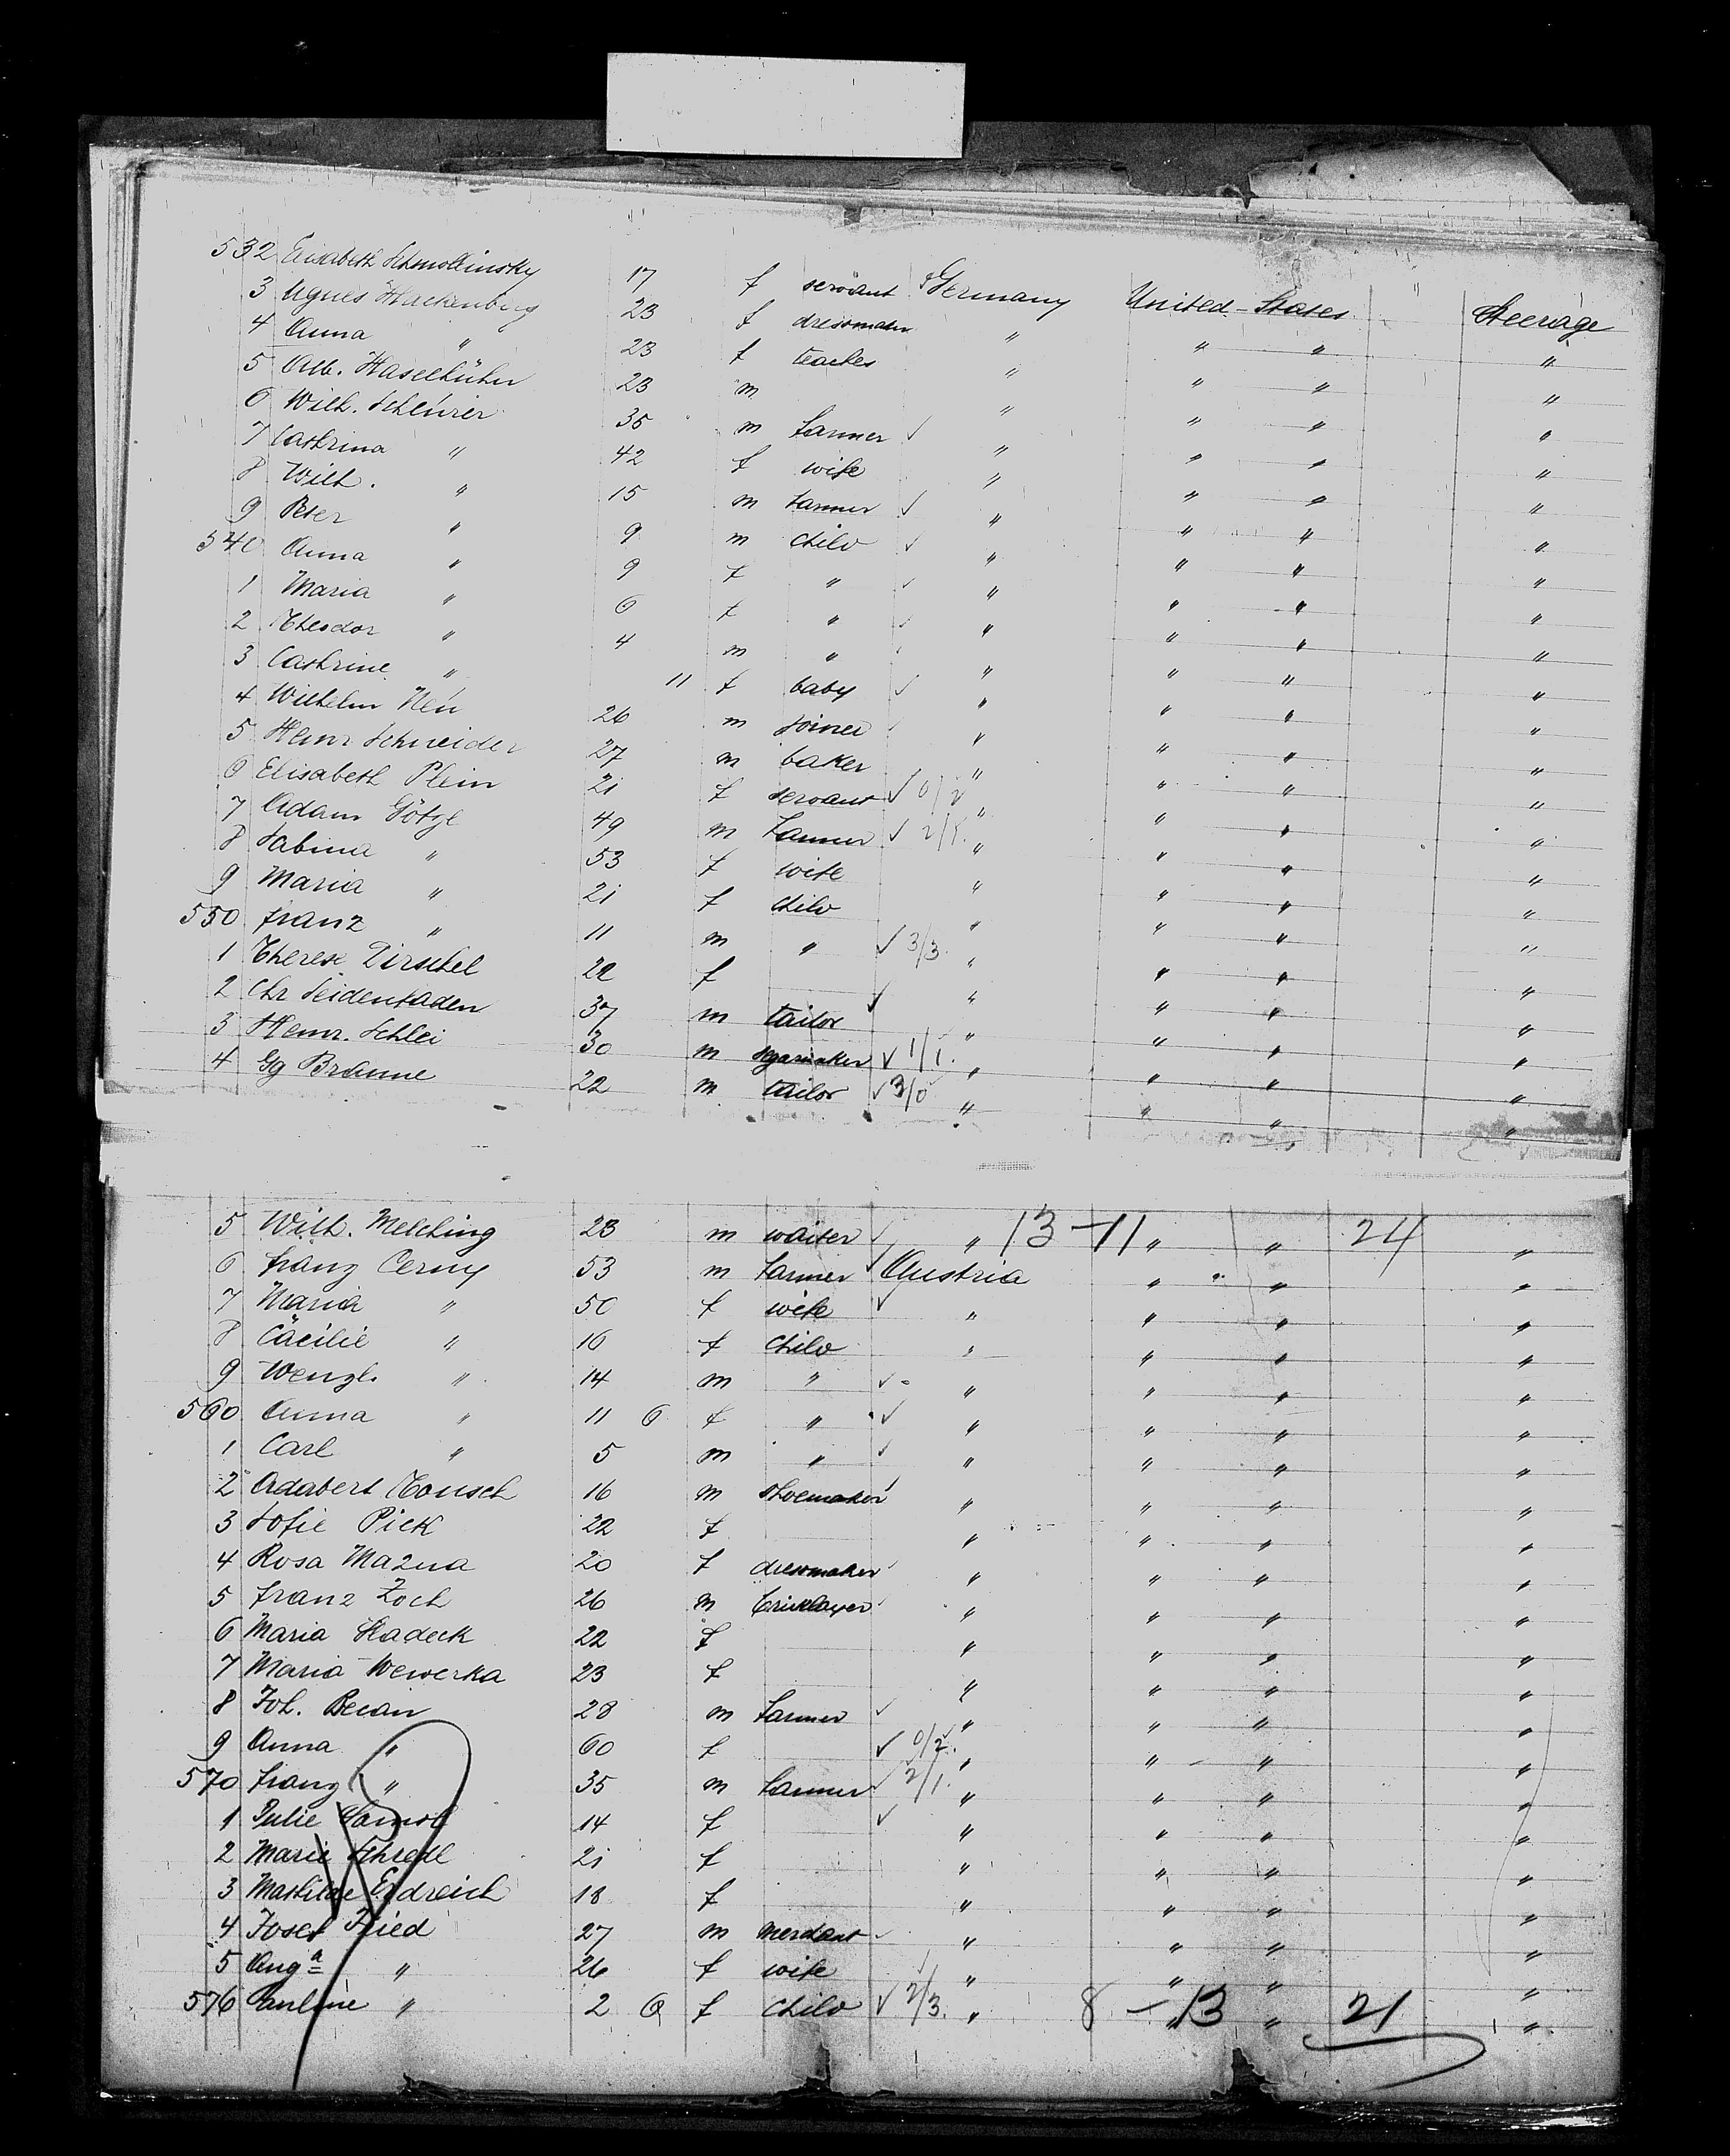 532 Elisabeth Schmollinsky 17 f servant Germany United-States Steerage
3 Agnes Hackenberg 23 f dressmaker " " " "
4 Anna " 23 f teacher " " " "
5 Alb. Haselhuhn 23 m " " " "
6 Wilh. Scheurer 35 m farmer ✓ " " " "
7 Cathrina " 42 f wife " " " "
8 Wilh. " 15 m farmer ✓ " " " "
9 Peter " 9 m child ✓ " " " "
540 Anna " 9 f " ✓ " " " "
1 Maria " 6 f " ✓ " " " "
2 Theodor " 4 m " ✓ " " " "
3 Cathrine " 11 f baby ✓ " " " "
4 Wilhelm Neu 26 m joiner ✓ " " " "
5 Heinr Schneider 27 m baker " " " "
6 Elisabeth Plein 21 f servant ✓ 0/2 " " " "
7 Adam Götze 49 m farmer ✓ 2/1. " " " "
8 Sabina " 53 f wife " " " "
9 Maria " 21 f child " " " "
550 Franz " 11 m " ✓ 3/3. " " " "
1 Therese Dirschel 22 f ✓ " " " "
2 Chr Seidenfaden 37 m tailor " " " "
3 Heinr. Schlei 30 m ✓ 1/1. " " " "
4 Gg Braune 22 m tailor ✓ 3/0 " " " "
5 Wilh. Melching 23 m waiter ✓ " 13-11 " " 24 "
6 Franz Cerny 53 m farmer ✓ Austria " " "
7 Maria " 50 f wife ✓ " " " "
8 Cäcilie " 16 f child " " " "
9 Wenzl. " 14 m " ✓ " " " "
560 Anna " 11 6 f " ✓ " " " "
1 Carl " 5 m " ✓ " " " "
2 Adabert Tousch 16 m shoemaker " " " "
3 Sofie Pick 22 f " " " "
4 Rosa Mazna 20 f dressmaker " " " "
5 Franz Zoch 26 m bricklayer " " " "
6 Maria Hadeck 22 f " " " "
7 Maria Wewerka 23 f " " " "
8 Joh. Becan 28 m farmer ✓ " " " "
9 Anna " 60 f ✓ 0/2. " " " "
570 Franz " 35 m farmer 2/1. " " " "
1 Julie 14 f ✓ " " " "
2 Marie Schredl 21 f " " " "
3 Mathilde Erdreich 18 f " " " "
4 Josef Fried 27 m merchant " " " "
5 Anga " 26 f wife ✓ " " " "
576 Pauline " 2 6 f child ✓ 2/3. " 8-13 " " 21 "